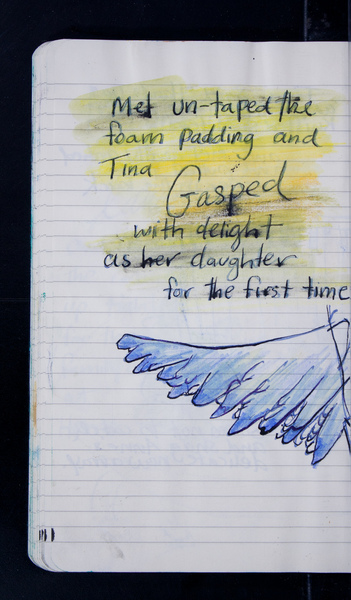 Mel un-taped the
foam padding and
Tina
Gasped
with delight
as her daughter
for the first time